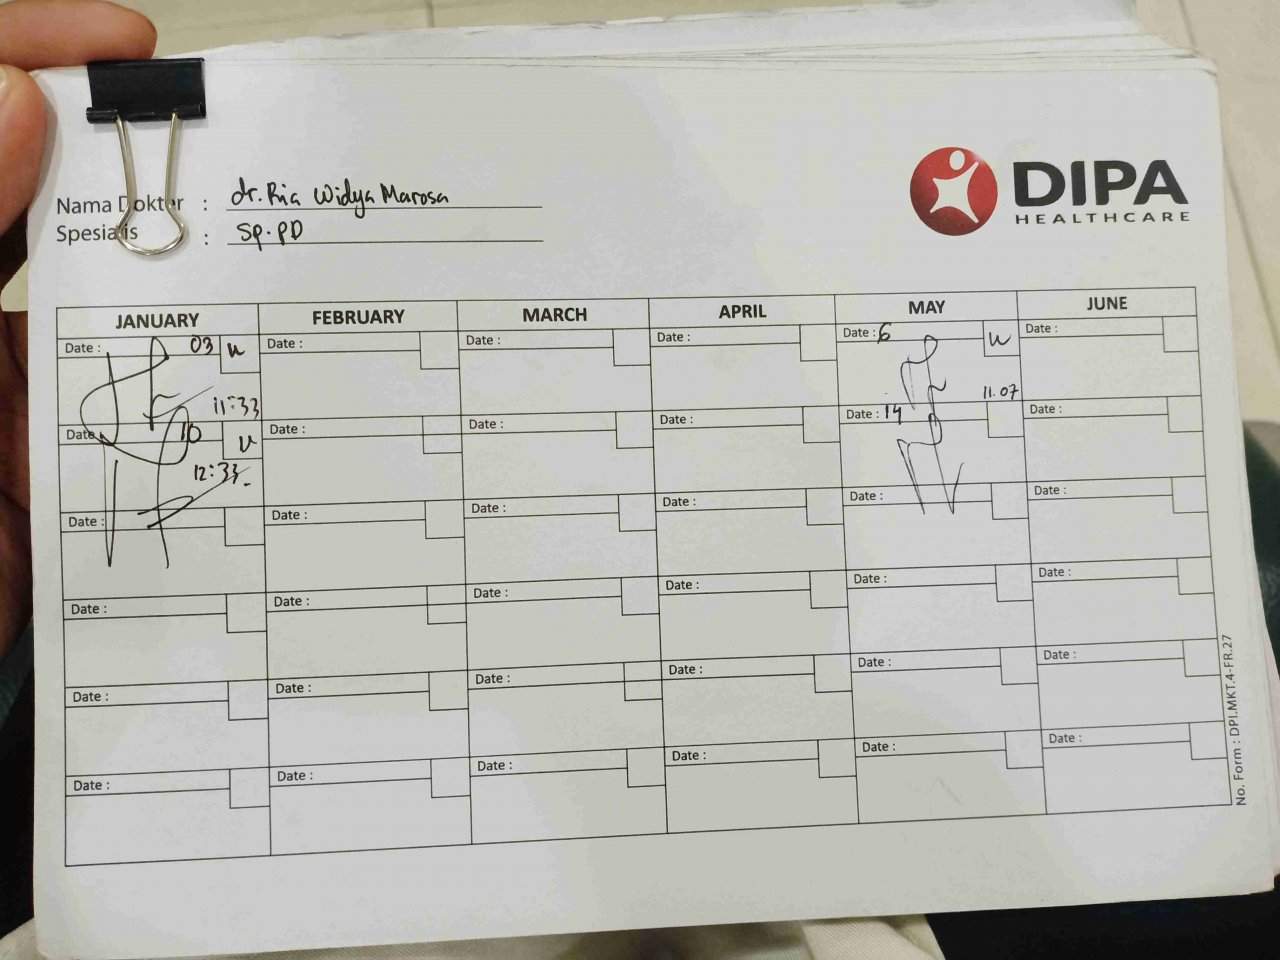 Nama Dokter : dr. Ria Widya Marosa
Spesialis : Sp.PD
DIPA
HEALTHCARE
JANUARY FEBRUARY MARCH APRIL MAY JUNE
Date : 03 Date : Date : Date : Date : 6 Date :
11:33 11.07
Date 10 Date : Date : Date : Date : 14 Date :
12:33
Date : Date : Date : Date : Date : Date :
Date : Date : Date : Date : Date : Date :
Date : Date : Date : Date : Date : Date :
Date : Date : Date : Date : Date : Date :
No. Form : DPI.MKT.4-FR.27